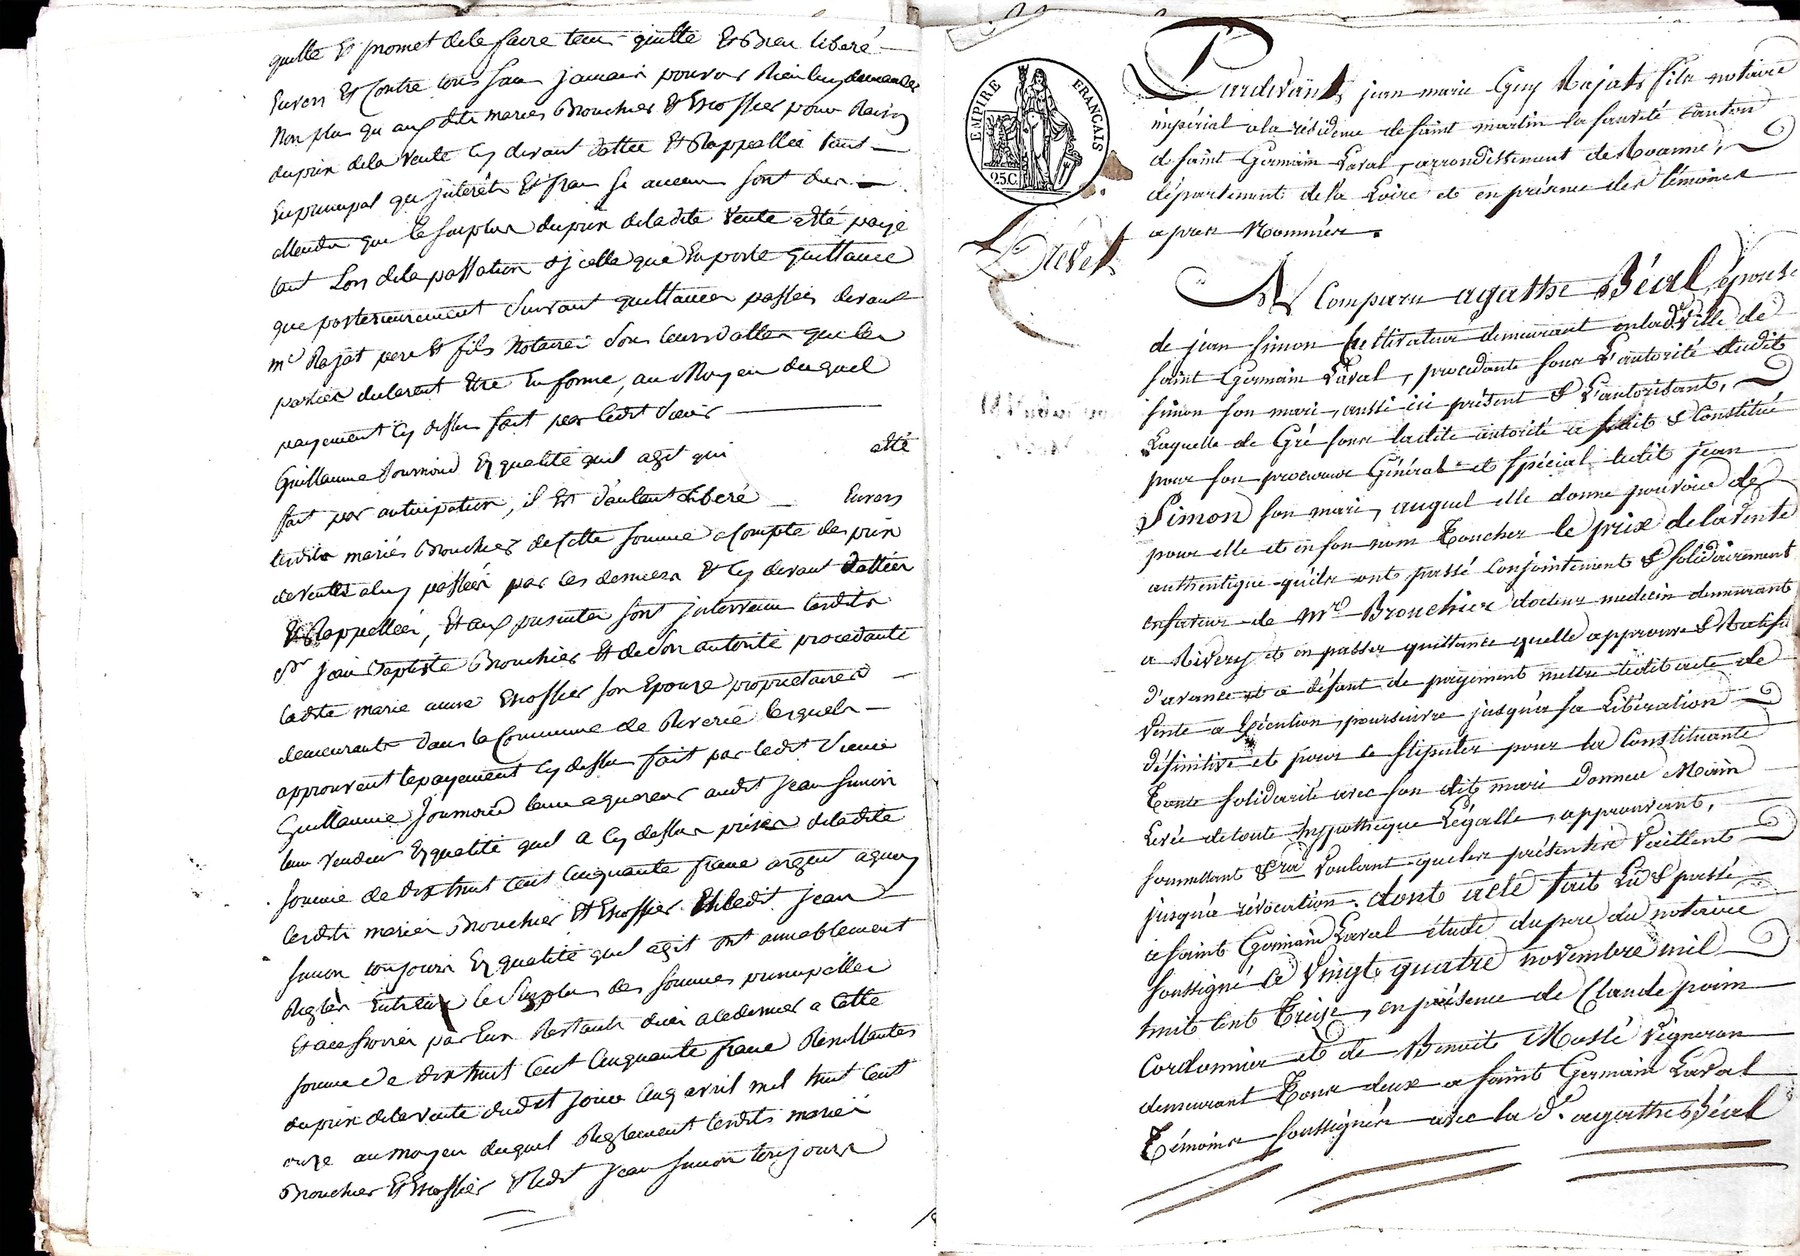 quitte et promet de le faire tenir quitte et Bien liberé
Envers et Contre tous sans jamais pouvoir Rien luy demander
Non plus qu'aux dits mariés Brouchier et Escoffier pour Raison
du prix de la vente cy devant dattée et Rappellée tant
En principal qu'jnterêts et frais si aucuns sont dus
attendu que le surplus du prix de la dite vente a été payé
tant Lors de la passation d'jcelle que En porte quittance
que posterieurement suivant quittances passées devant
mes Rajat pere et fils Notaires sous leurs dattes que les
parties declarent Etre En forme, au Moyen du quel
payement cy dessus fait par ledit sieur
Guillaume Journoud En qualité quil agit qui été
fait par anticipation, il Est d'autant Liberé Envers
lesdits mariés Brouchier de cette somme a Compte des prix
de ventes a luy passées par ces derniers et cy devant dattées
et Rappellées, Et aux presentes sont jntervenus lesdits
sr Jean Baptiste Brouchier et de son autorité procedante
ladite marie anne Escoffier son Epouze proprietaires
demeurants dans la Commune de Riverie lesquels
approuvent le payement cy dessus fait par ledit Sieur
Guillaume Journoud leur aquereur audit Jean Simon
leur vendeur En qualité quil a cy dessus prise de la dite
somme de dix huit cent Cinquante francs argent a quoy
lesdits mariés Brouchier et Escoffier et ledit Jean
Simon toujours En qualité quil agit ont amiablement
Reglés Entre eux le Surplus des sommes principalles
et accessoires par Eux Restants dues a ce dernier a cette
somme de dix huit Cent Cinquante francs Resultantes
du prix de la vente dudit jour Cinq avril mil huit Cent
onze au moyen duquel Reglement lesdits mariés
Brouchier et Escoffier et ledit Jean Simon toujours
EMPIRE FRANÇAIS
25C
Brevet
Pardevant jean marie Guy Rajat fils notaire
impérial a la résidence de saint martin la sauveté canton
de saint Germain Laval, arrondissement de Roanne,
département de la Loire et en présence des témoins
apres Nommés.
A Comparu agathe Béal, épouse
de jean simon Cultivateur demeurant en la d. ville de
saint Germain Laval, procedante sous L'autorité dudit
simon son mari, aussi ici présent & L'autorisant,
Laquelle de Gré sous ladite autorité a fait & constitué
pour son procureur Général et spécial ledit jean
Simon son mari, auquel elle donne pouvoir de
pour elle et en son nom Toucher le prix de la vente
authentique qu'ils ont passé Conjointement & solidairement
en faveur de Mr Brouchier docteur medecin demeurant
a Rivery et en passer quittance quelle approuve & Ratifie
d'avance et a défaut de payement mettre ledit acte de
vente a Exécution, poursuivre jusqu'a sa Libération
définitive et pour ce stipuler pour la Constituante
Toute solidarité avec son dit mari donner Main
Levée de toute hypothèque Légalle, approuvant,
soumettant &ra voulant que les présentes vaillent
jusqu'a révocation. dont acte fait Lu & passé
a saint Germain Laval étude du pere du notaire
soussigné Le vingt quatre novembre mil
huit cent Treize, en présence de Claude poim
Cordonnier et de Benoit Massé Vigneron
demeurant Tous deux a saint Germain Laval
Témoins soussignés avec la de agathe Béal